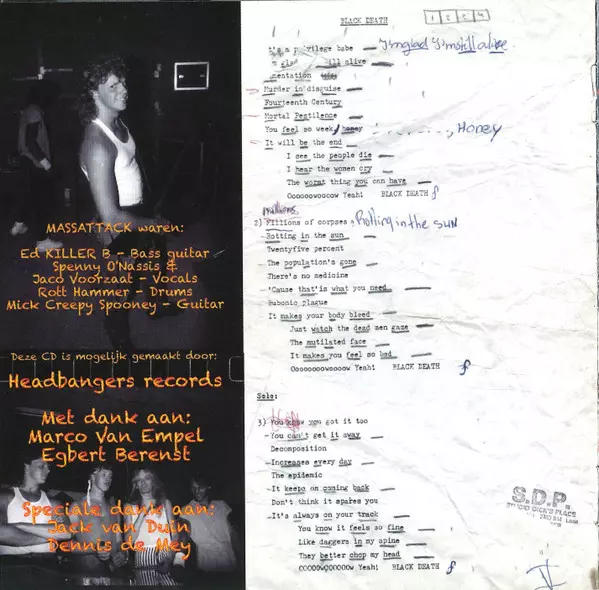 MASSATTACK waren:
Ed KILLER B - Bass guitar
Spenny O'Nassis &
Jaco Voorzaat - Vocals
Rott Hammer - Drums
Mick Creepy Spooney - Guitar
Deze CD is mogelijk gemaakt door:
Headbangers records
Met dank aan:
Marco Van Empel
Egbert Berenst
Speciale dank aan:
Jack van Duin
Dennis de Mey
BLACK DEATH
1 2 3 4
It's a privilege babe I'm glad I'm still alive
still alive
mentation
Murder in disguise
Fourteenth Century
Mortal Pestilence
You feel so week, honey ........, Honey
It will be the end
I see the people die
I hear the women cry
The worst thing you can have
Oooooowoocow Yeah! BLACK DEATH
Millions
2) Fillions of corpses, Rolling in the sun
Rotting in the sun
Twentyfive percent
The population's gone
There's no medicine
'Cause that'is what you need
Bubonic plague
It makes your body bleed
Just watch the dead men gaze
The mutilated face
It makes you feel so bad
Ooooooowoooow Yeah! BLACK DEATH
Solo:
3) You know you got it too
You can't get it away
Decomposition
Increases every day
The epidemic
It keeps on coming back
Don't think it spares you
It's always on your track
You know it feels so fine
Like daggers in my spine
They better chop my head
OOOOOwOOOOOOw Yeah! BLACK DEATH
S.D.P.
STUDIO DICK'S PLACE
V